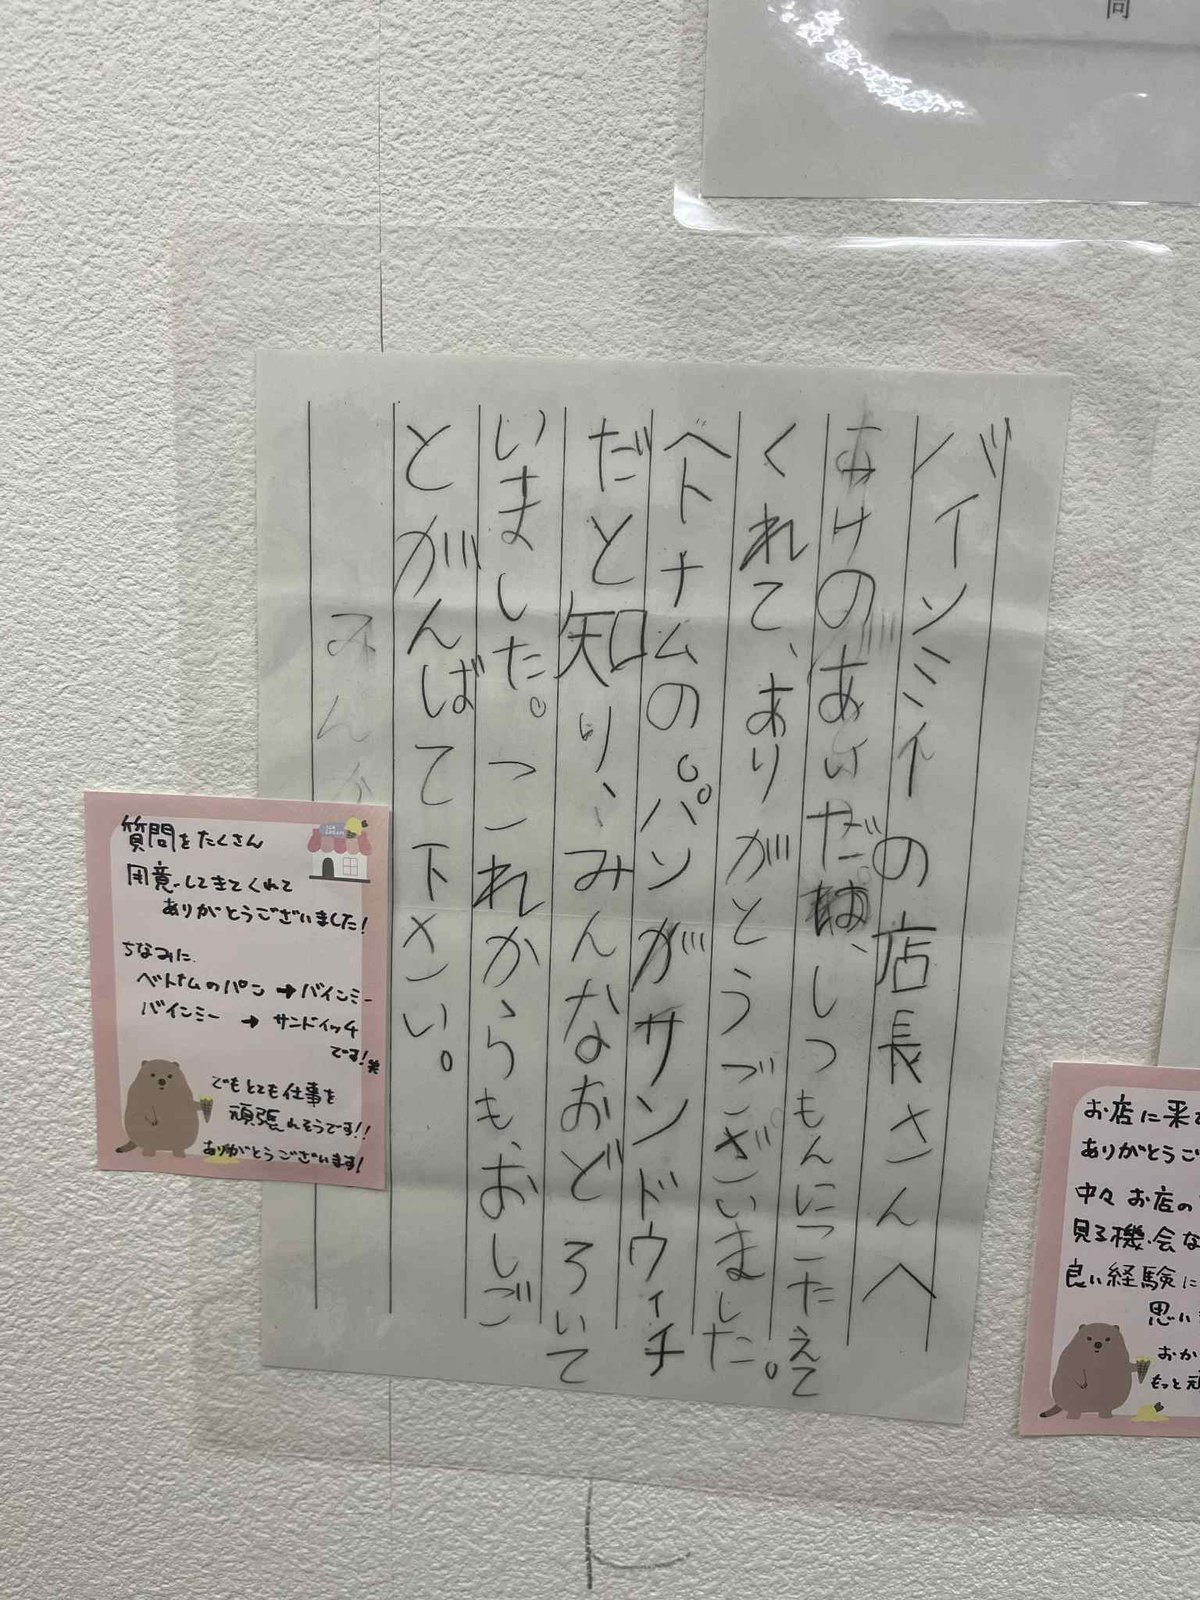 バインミイの店長さんへ
あけのあいだは、しつもんにこたえて
くれて、ありがとうございました。
ベトナムの。パンがサンドウィチ
だと知り、みんなおどろいて
いました。これからも、おしご
とがんばて下さい。
みん
質問をたくさん
用意してきてくれて
ありがとうございました!
ちなみに
ベトナムのパン→バインミー
バインミー → サンドイッチ
です!笑
でもとても仕事を
頑張れそうです!!
ありがとうございます!
お店に来
ありがとうご
中々お店の
見る機会な
良い経験に
思い
おか
もっと頑
同